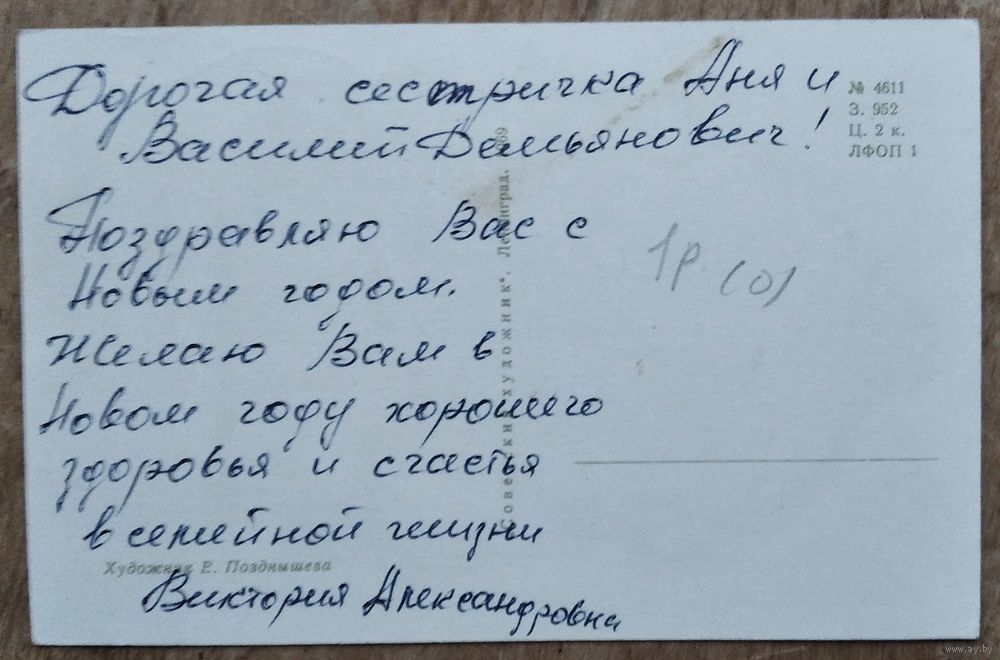 Дорогая сестричка Аня и
Василий Демьянович!
Поздравляю Вас с
Новым годом.
Желаю Вам в
Новом году хорошего
здоровья и счастья
в семейной жизни
Виктория Александровна
№ 4611
З. 952
Ц. 2 к.
ЛФОП 1
1р (0)
художник". Ленинград.
Художник Е. Позднышева
www.ay.by